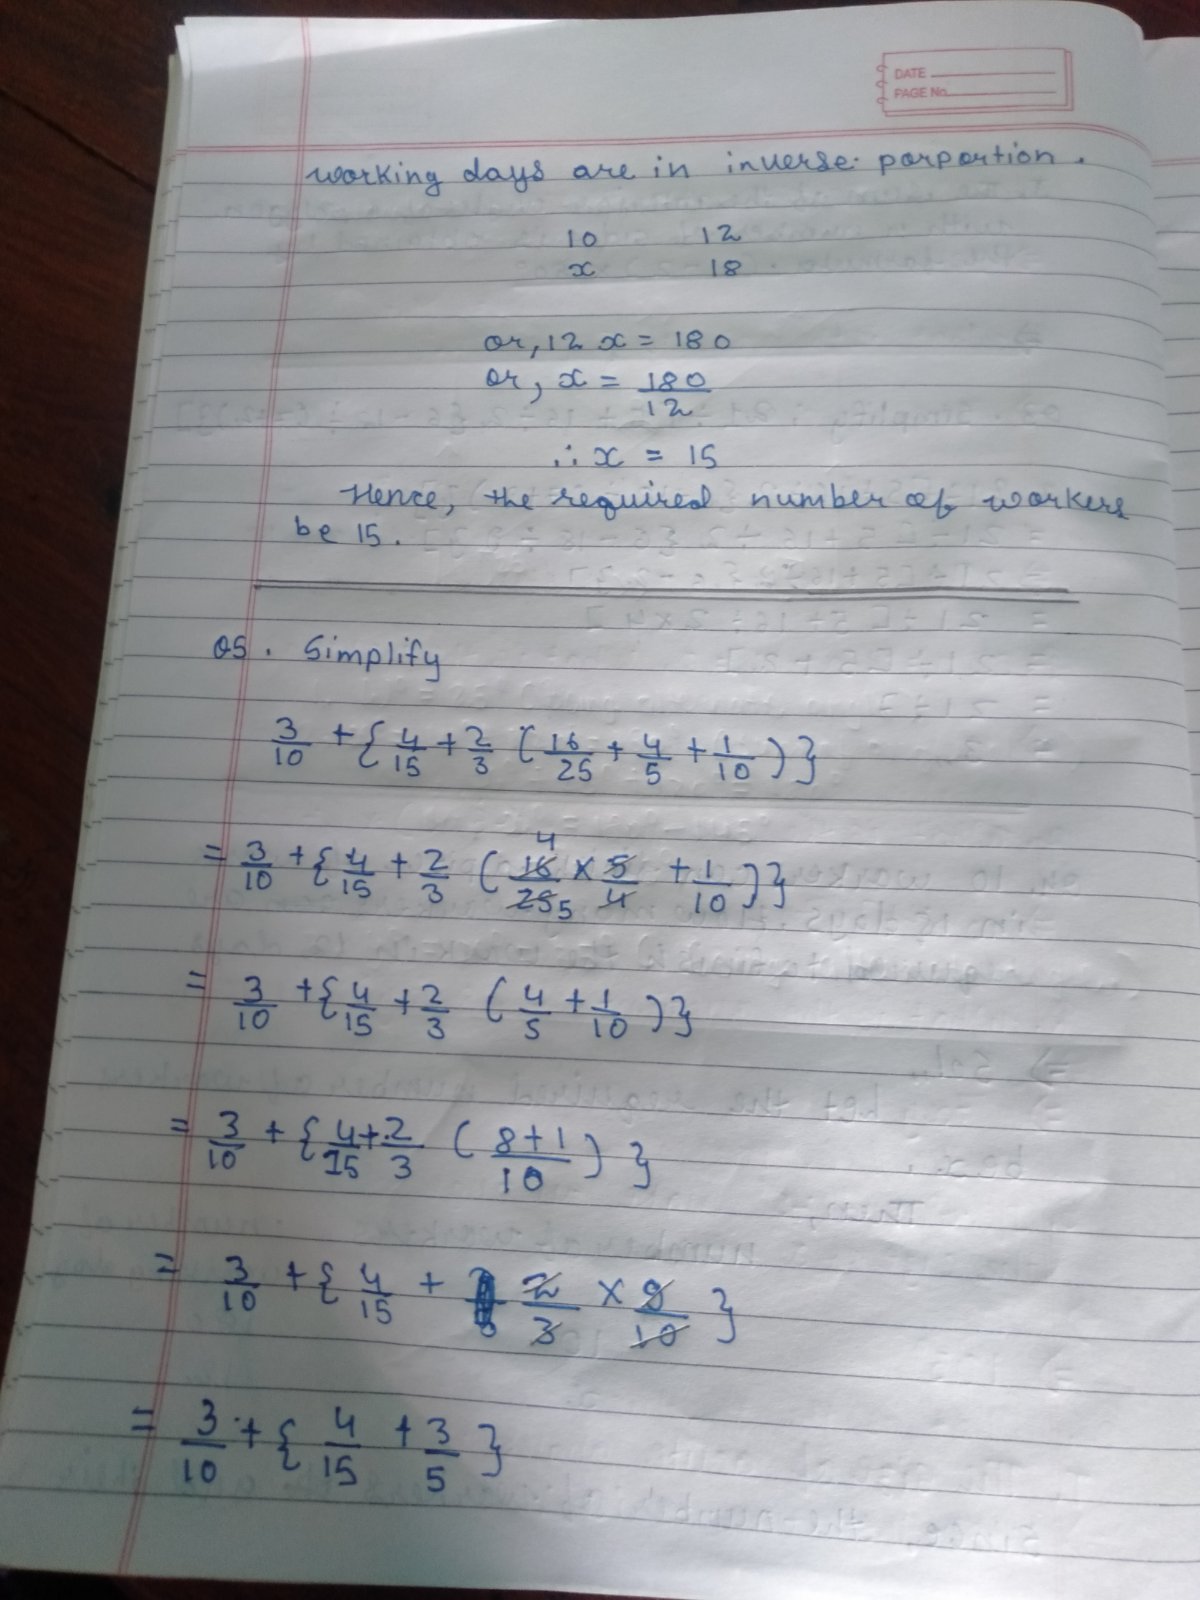 DATE
PAGE No.
working days are in inverse porportion.
10 12
x 18
or, 12 x = 180
or, x = 180/12
∴ x = 15
Hence, the required number of workers
be 15.
Q5. Simplify
3/10 + {4/15 + 2/3 (16/25 + 4/5 + 1/10)}
= 3/10 + {4/15 + 2/3 (16/25 × 5/4 + 1/10)}
= 3/10 + {4/15 + 2/3 (4/5 + 1/10)}
= 3/10 + {4/15 + 2/3 (8+1/10)}
= 3/10 + {4/15 + 2/3 × 9/10}
= 3/10 + {4/15 + 3/5}